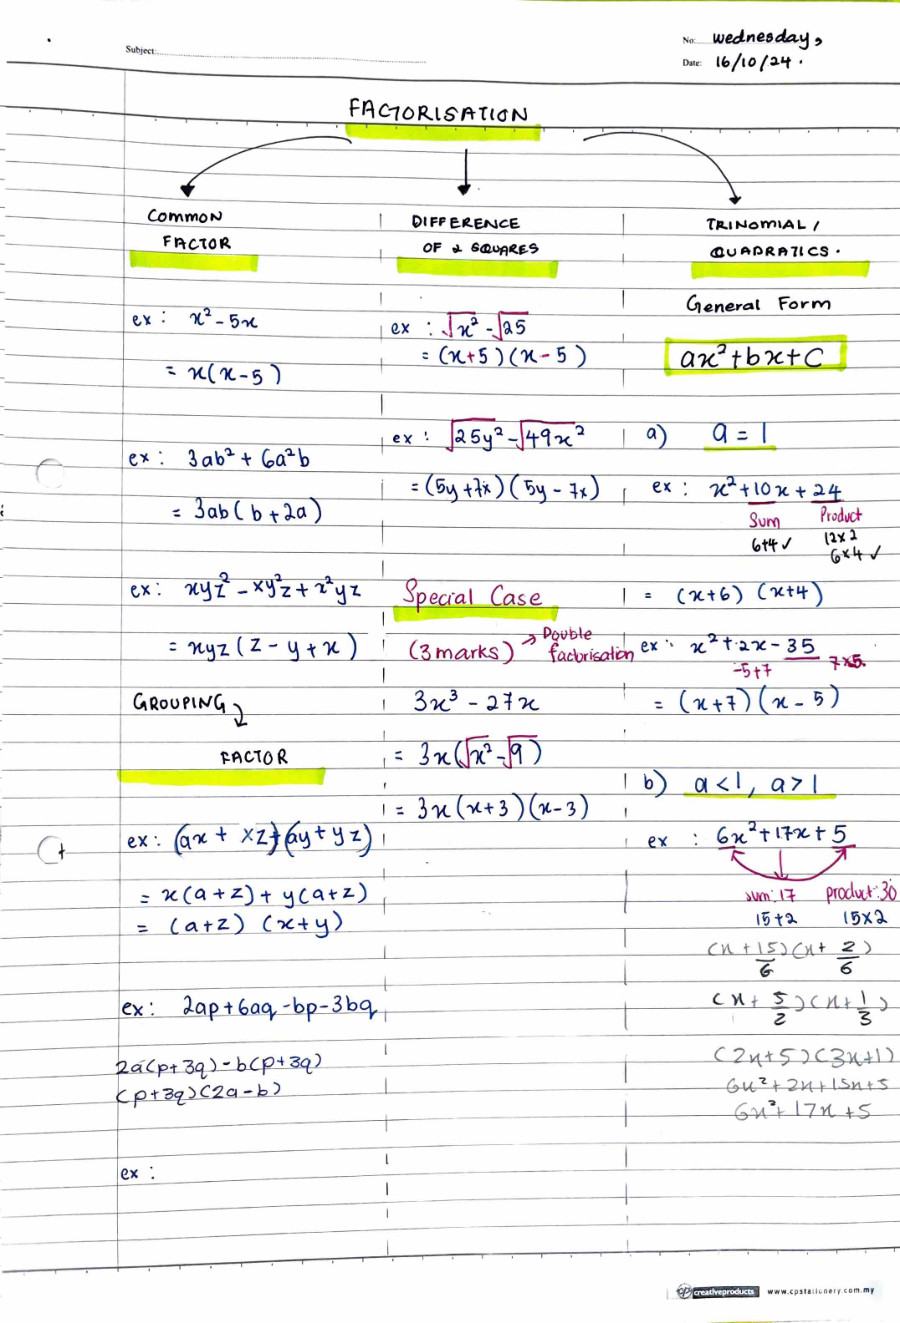 No: wednesday,
Subject:
Date: 16/10/24.
FACTORISATION
COMMON
FACTOR
ex: x² - 5x
= x(x-5)
ex: 3ab² + 6a²b
= 3ab(b+2a)
ex: xyz² - xy²z + x²yz
= xyz(z - y + x)
GROUPING
FACTOR
ex: (ax + xz)+(ay+yz)
= x(a+z) + y(a+z)
= (a+z) (x+y)
ex: 2ap+6aq-bp-3bq
2a(p+3q)-b(p+3q)
(p+3q)(2a-b)
ex:
DIFFERENCE
OF 2 SQUARES
ex: √x² - √25
= (x+5)(x-5)
ex: √25y² - √49x²
= (5y+7x)(5y-7x)
Special Case
(3 marks) → Double
factorisation
3x³ - 27x
= 3x(√x² - √9)
= 3x(x+3)(x-3)
TRINOMIAL /
QUADRATICS.
General Form
ax²+bx+c
a) a = 1
ex: x²+10x+24
Sum Product
6+4 ✓ 12x2
6x4 ✓
= (x+6) (x+4)
ex: x²+2x-35
-5+7 7x5
= (x+7)(x-5)
b) a<1, a>1
ex: 6x²+17x+5
sum:17 product:30
15+2 15x2
(x + 15/6)(x + 2/6)
(x + 5/2)(x + 1/3)
(2x+5)(3x+1)
6x²+2x+15x+5
6x²+17x+5
cp creativeproducts www.cpstationery.com.my